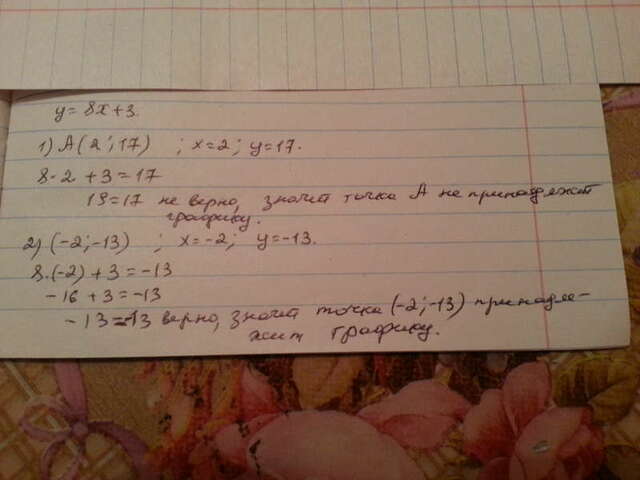 y = 8x + 3.
1) A(2; 17) ; x = 2; y = 17.
8 · 2 + 3 = 17
19 = 17 не верно, значит точка А не принадлежит
графику.
2) (-2; -13) ; x = -2; y = -13.
8 · (-2) + 3 = -13
-16 + 3 = -13
-13 = -13 верно, значит точка (-2; -13) принадле-
жит графику.